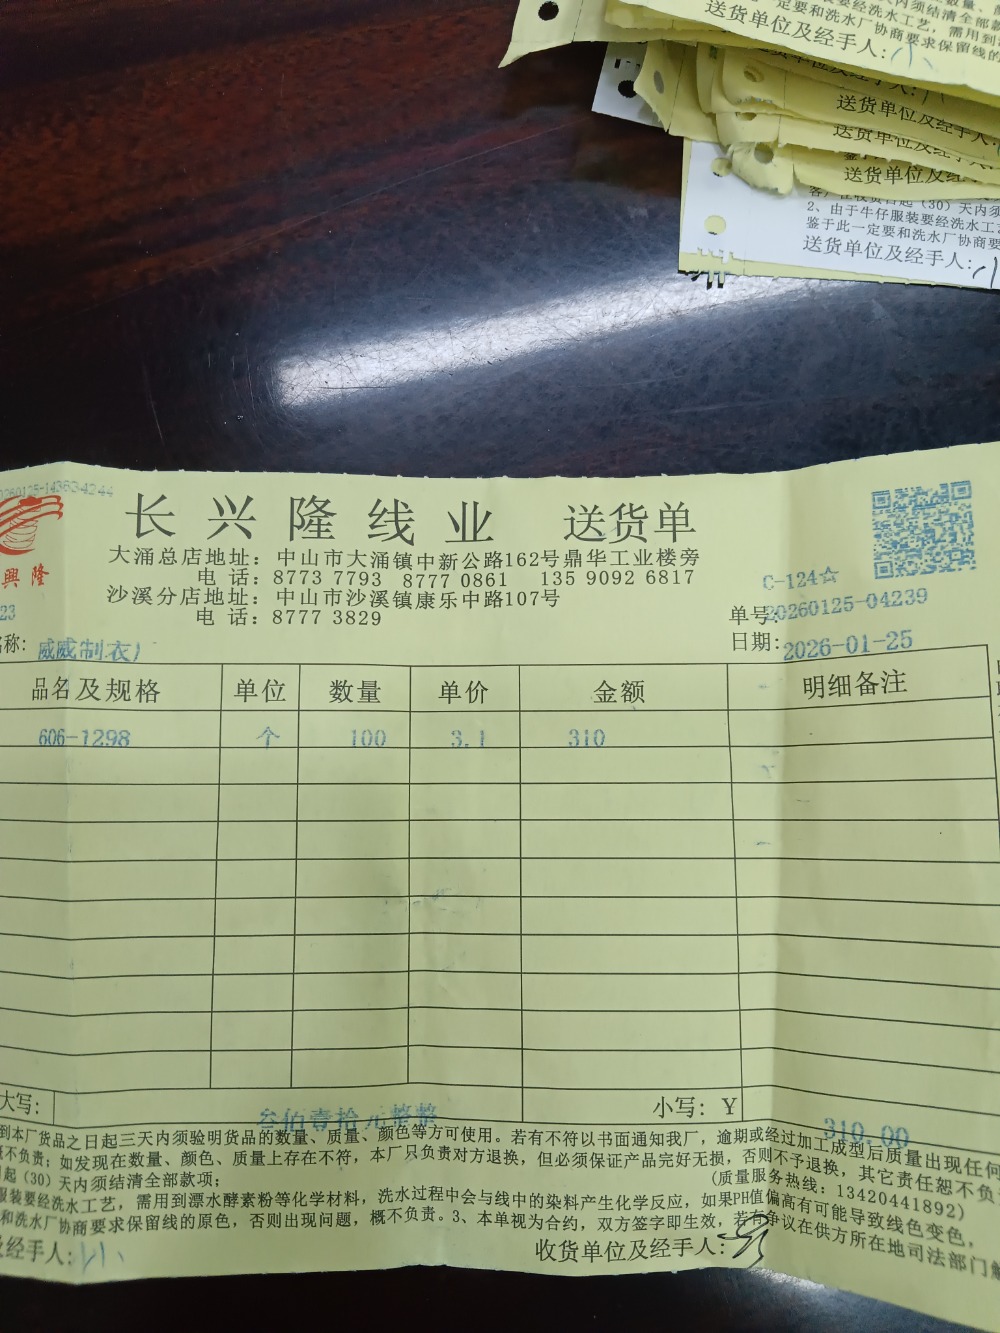 天内须结清全部款
要经洗水工艺，需用到
一定要和洗水厂协商要求保留线的
送货单位及经手人：小
送货单位及经手人：
送货单位及经手人：
送货单位及经
（30）天内须
2、由于牛仔服装要经洗水工
鉴于此一定要和洗水厂协商要
送货单位及经手人：小
长兴隆线业 送货单
大涌总店地址：中山市大涌镇中新公路162号鼎华工业楼旁
电 话：8773 7793 8777 0861 135 9092 6817
沙溪分店地址：中山市沙溪镇康乐中路107号
电 话：8777 3829
興隆
C-124☆
单号：20260125-04239
日期：2026-01-25
称：威威制衣厂
品名及规格 单位 数量 单价 金额 明细备注
606-1298 个 100 3.1 310
大写： 叁佰壹拾元整整 小写：￥ 310.00
到本厂货品之日起三天内须验明货品的数量、质量、颜色等方可使用。若有不符以书面通知我厂，逾期或经过加工成型后质量出现任何
概不负责；如发现在数量、颜色、质量上存在不符，本厂只负责对方退换，但必须保证产品完好无损，否则不予退换，其它责任恕不负
起（30）天内须结清全部款项； （质量服务热线：13420441892）
服装要经洗水工艺，需用到漂水酵素粉等化学材料，洗水过程中会与线中的染料产生化学反应，如果PH值偏高有可能导致线色变色，
和洗水厂协商要求保留线的原色，否则出现问题，概不负责。3、本单视为合约，双方签字即生效，若有争议在供方所在地司法部门解
及经手人：小 收货单位及经手人：